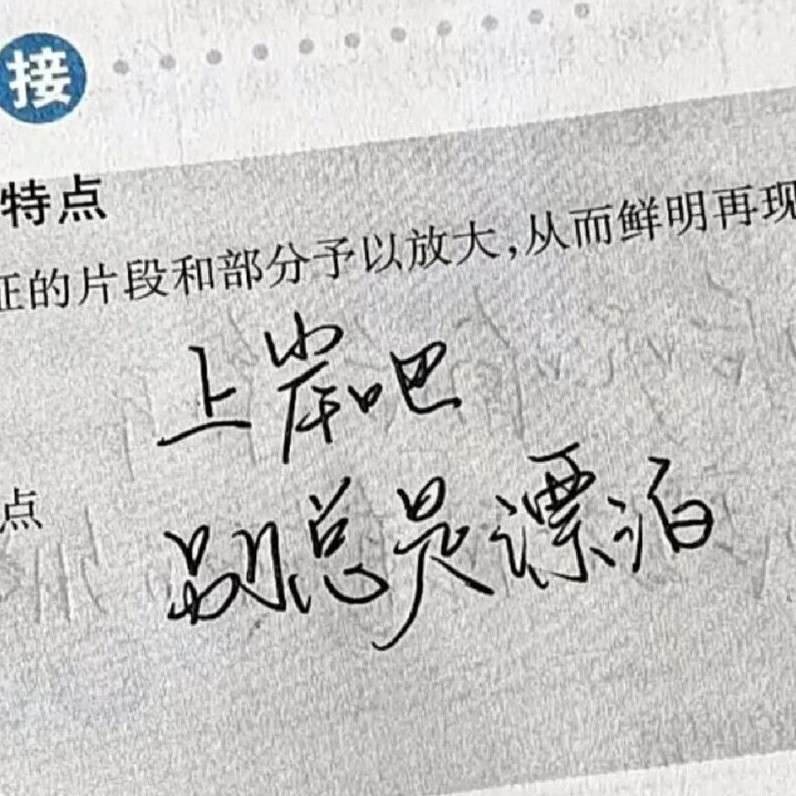 接
特点
征的片段和部分予以放大,从而鲜明再现
上岸吧
点
别总是漂泊